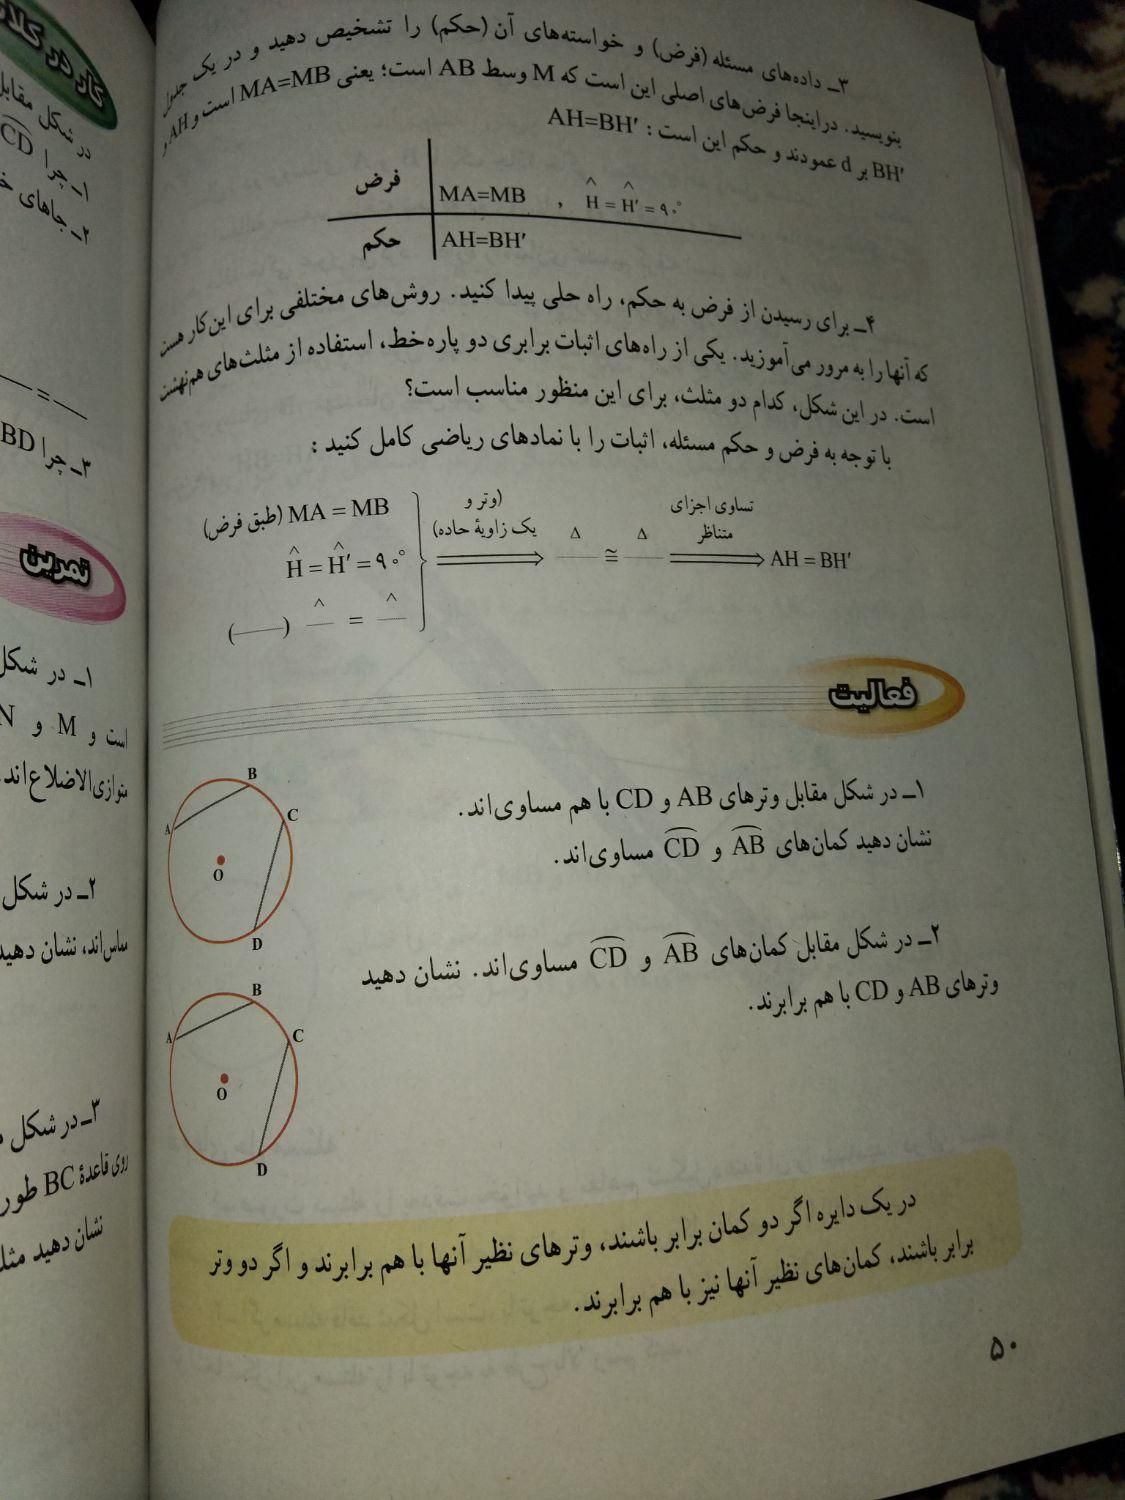 ۳ـ داده‌های مسئله (فرض) و خواسته‌های آن (حکم) را تشخیص دهید و در یک جدول
بنویسید. دراینجا فرض‌های اصلی این است که M وسط AB است؛ یعنی MA=MB است و AH و
BH′ بر d عمودند و حکم این است : AH=BH′
فرض MA=MB , Ĥ = Ĥ′ = ۹۰°
حکم AH=BH′
۴ـ برای رسیدن از فرض به حکم، راه حلی پیدا کنید. روش‌های مختلفی برای این‌کار هست
که آنها را به مرور می‌آموزید. یکی از راه‌های اثبات برابری دو پاره‌خط، استفاده از مثلث‌های هم‌نهشت
است. در این شکل، کدام دو مثلث، برای این منظور مناسب است؟
با توجه به فرض و حکم مسئله، اثبات را با نمادهای ریاضی کامل کنید :
(طبق فرض) MA = MB
Ĥ = Ĥ′ = ۹۰°
(——) —^ = —^
(وتر و
یک زاویهٔ حاده)
⟹ —Δ ≅ —Δ
تساوی اجزای
متناظر
⟹ AH = BH′
فعالیت
۱ـ در شکل مقابل وترهای AB و CD با هم مساوی‌اند.
نشان دهید کمان‌های AB و CD مساوی‌اند.
B
C
A
O
D
۲ـ در شکل مقابل کمان‌های AB و CD مساوی‌اند. نشان دهید
وترهای AB و CD با هم برابرند.
B
A
C
O
D
در یک دایره اگر دو کمان برابر باشند، وترهای نظیر آنها با هم برابرند و اگر دو وتر
برابر باشند، کمان‌های نظیر آنها نیز با هم برابرند.
۵۰
کار در کلاس
در شکل مقابل
۱ـ چرا CD
۲ـ جاهای
— = —
۳ـ چرا BD
تمرین
۱ـ در شکل
است و M و N
متوازی‌الاضلاع‌اند.
۲ـ در شکل
مماس‌اند، نشان دهید
۳ـ در شکل
روی قاعدهٔ BC طور
نشان دهید